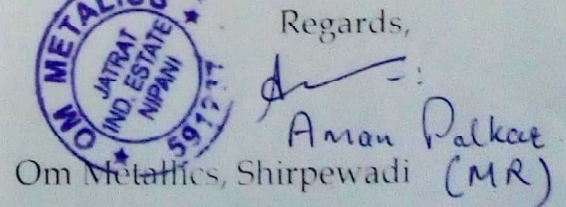 Regards,
OM METALICS
JATRAT
IND. ESTATE
NIPANI
Aman Palkar
Om Metallics, Shirpewadi (MR)